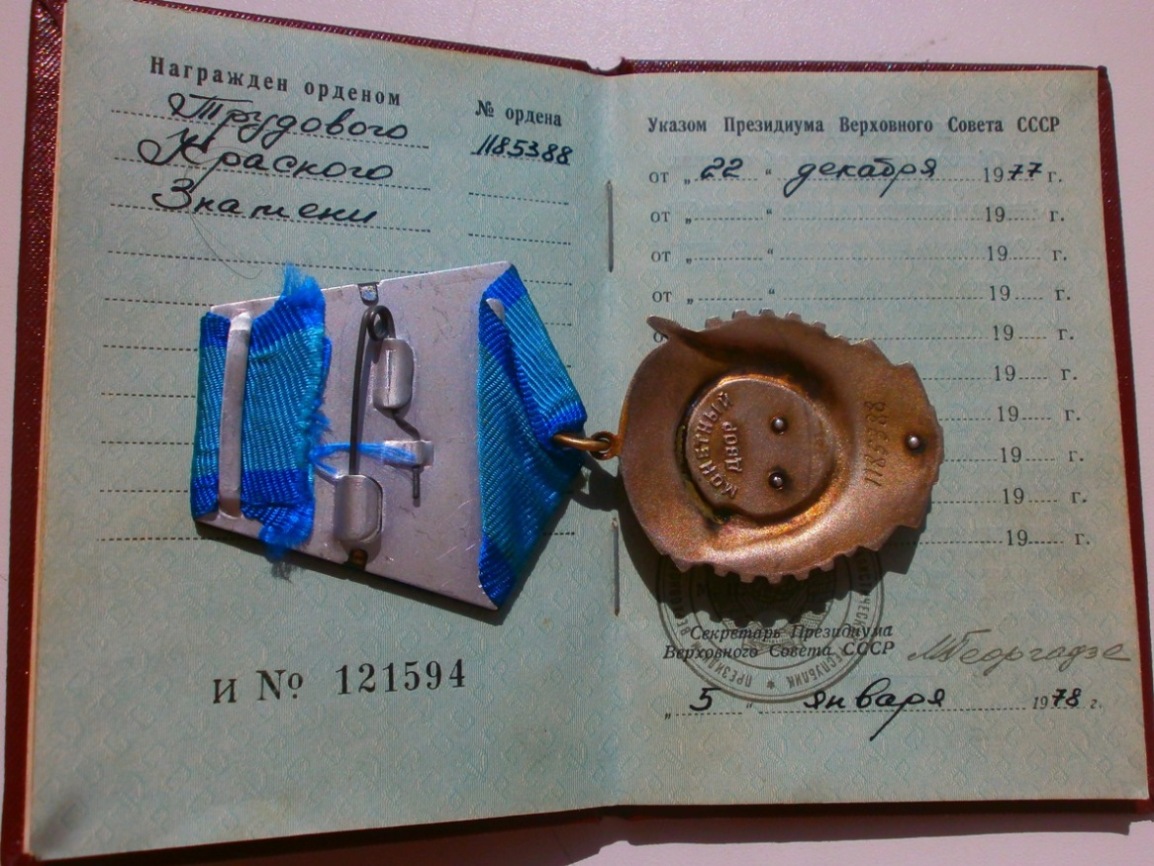 Награжден орденом
Трудового
Красного
Знамени
№ ордена
1185388
И № 121594
Указом Президиума Верховного Совета СССР
от „ 22 “ декабря 1977 г.
от „ “ 19 г.
от „ “ 19 г.
от „ “ 19 г.
19 г.
19 г.
19 г.
19 г.
19 г.
19 г.
МОНЕТНЫЙ
ДВОР
1185388
Секретарь Президиума
Верховного Совета СССР
МГеоргадзе
„ 5 “ января 1978 г.